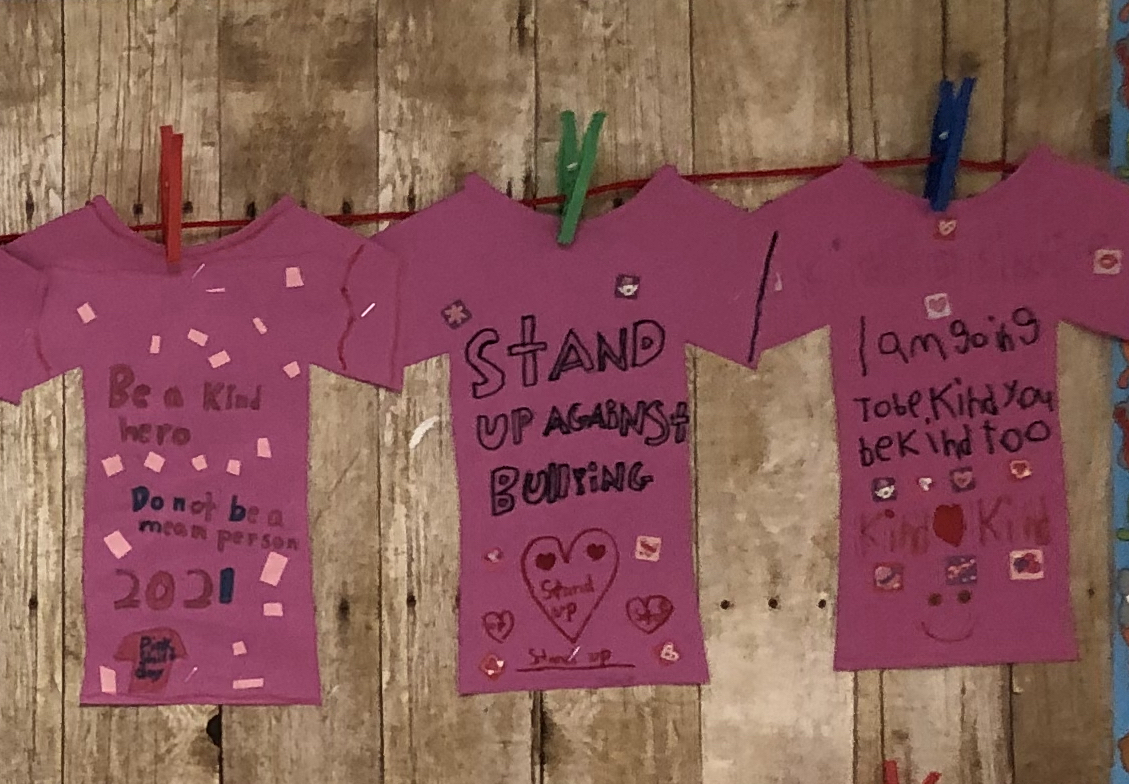 Be a Kind
hero
Do not be a
mean person
2021
Pink
Shirt
day
STAND
UP AGAINSt
BUllYiNG
Stand
up
Stand up
I am going
To be Kind You
be Kind too
Kind Kind